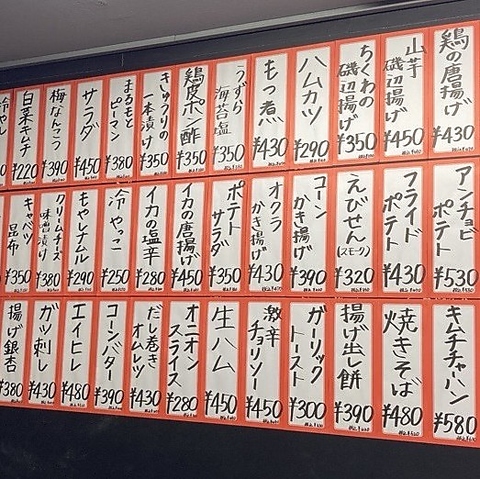 鶏の唐揚げ ¥430
山芋 磯辺揚げ ¥450
ちくわの 磯辺揚げ ¥350
ハムカツ ¥290
もつ煮 ¥430
うずらの 海苔塩 ¥350
鶏皮ポン酢 ¥350
きゅうりの 一本漬け ¥350
まるもと ピーマン ¥380
サラダ ¥450
梅なんこつ ¥390
白菜キムチ ¥220
冷やし
アンチョビ ポテト ¥530
フライド ポテト ¥430
えびせん (スモーク) ¥320
コーン かき揚げ ¥390
オクラ かき揚げ ¥430
ポテト サラダ ¥350
イカの唐揚げ ¥450
イカの塩辛 ¥280
冷やっこ ¥250
もやしナムル ¥290
クリームチーズ 味噌漬け ¥380
キャベツ 昆布 ¥350
キムチチャーハン ¥580
焼きそば ¥480
揚げ出し餅 ¥390
ガーリック トースト ¥300
激辛 チョリソー ¥450
生ハム ¥450
オニオン スライス ¥280
だし巻き オムレツ ¥430
コーンバター ¥390
エイヒレ ¥480
ガツ刺し ¥430
揚げ銀杏 ¥380